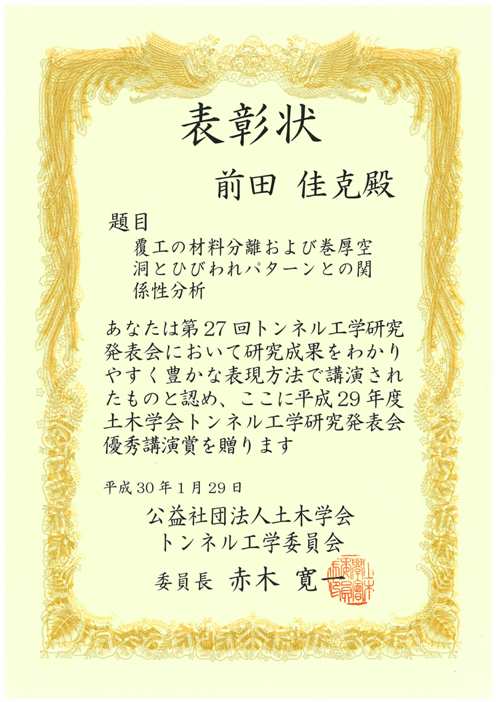 表彰状
前田 佳克殿
題目
覆工の材料分離および巻厚空
洞とひびわれパターンとの関
係性分析
あなたは第27回トンネル工学研究
発表会において研究成果をわかり
やすく豊かな表現方法で講演され
たものと認め、ここに平成29年度
土木学会トンネル工学研究発表会
優秀講演賞を贈ります
平成30年1月29日
公益社団法人土木学会
トンネル工学委員会
委員長 赤木 寛一